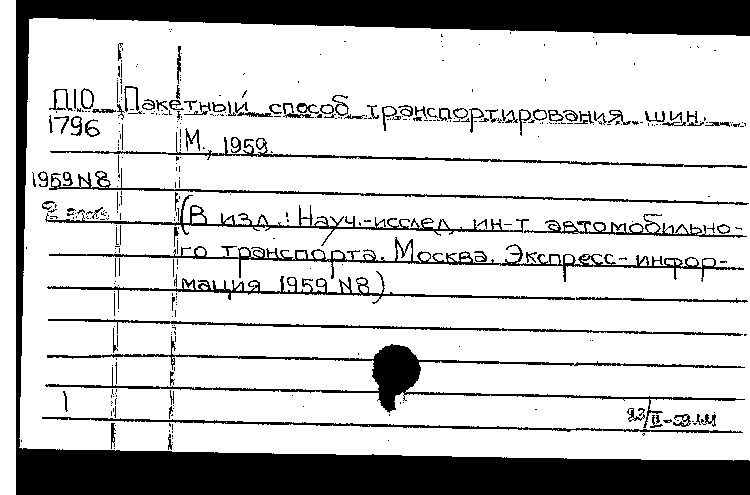 П10 Пакетный способ транспортирования шин.
1796
М., 1959.
1959 N8
2 экз.
(В изд.: Науч.-исслед. ин-т автомобильно-
го транспорта. Москва. Экспресс-инфор-
мация 1959 N8).
1
23/II-59